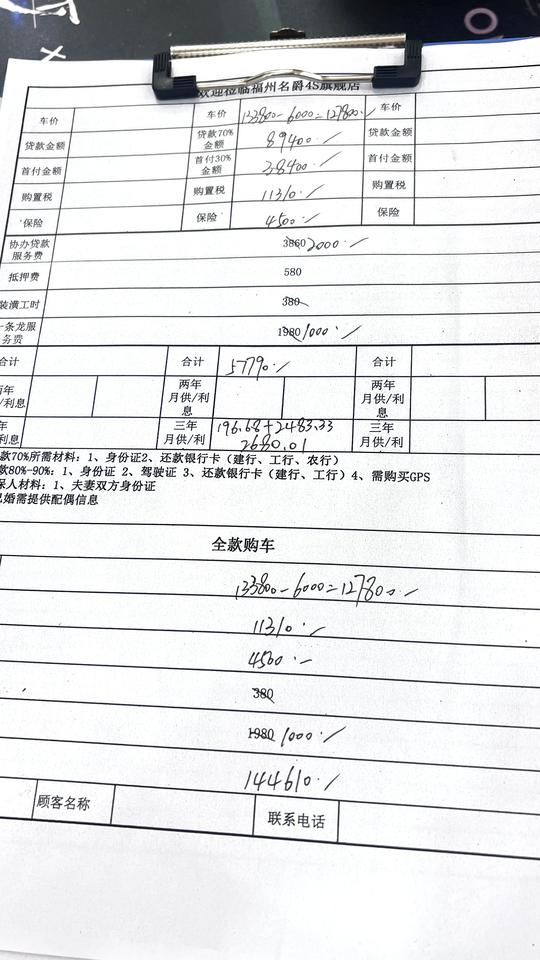 欢迎位临福州名爵4S旗舰店
车价 车价 133800-6000=127800 车价
贷款金额 贷款70%金额 89400 贷款金额
首付金额 首付30%金额 38400 首付金额
购置税 购置税 11310 购置税
保险 保险 4500 保险
协办贷款服务费 3860 2000
抵押费 580
装潢工时 380
一条龙服务费 1980 1000
合计 合计 57790 合计
两年月供/利息 两年月供/利息 两年月供/利息
年利息 三年月供/利 196.68+2483.33 三年月供/利
2680.01
款70%所需材料：1、身份证2、还款银行卡（建行、工行、农行）
款80%-90%：1、身份证 2、驾驶证 3、还款银行卡（建行、工行）4、需购买GPS
保人材料：1、夫妻双方身份证
已婚需提供配偶信息
全款购车
133800-6000=127800
11310
4500
380
1980 1000
144610
顾客名称 联系电话